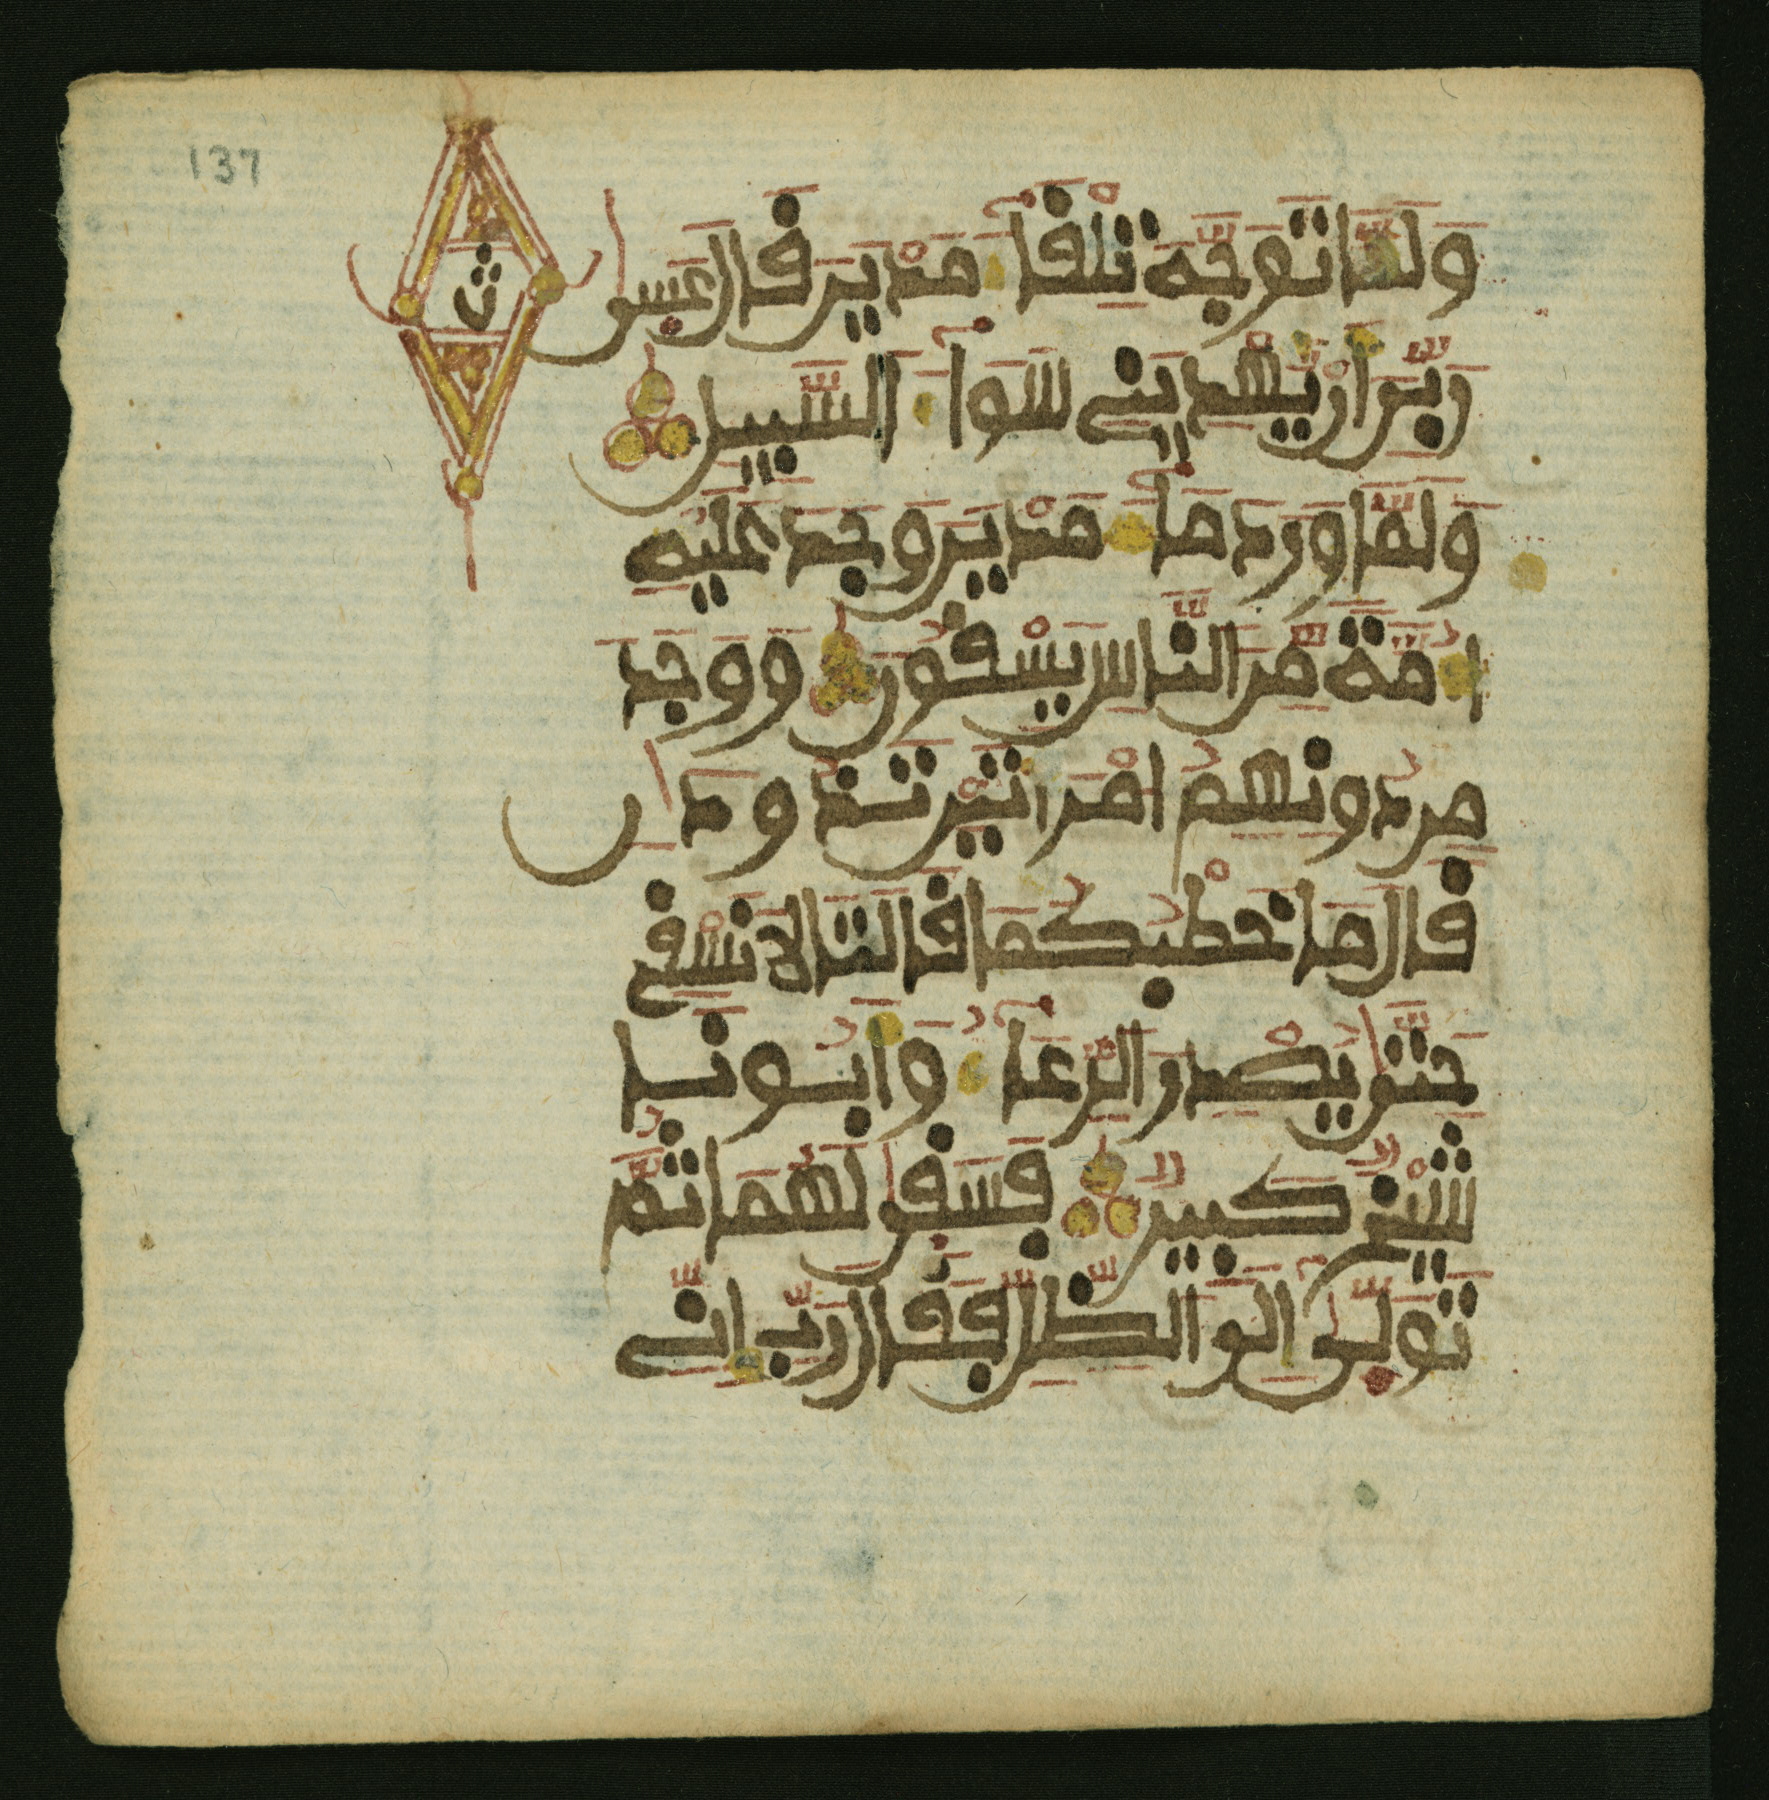 137
ث
وَلَمَّا تَوَجَّهَ تِلْقَآءَ مَدْيَنَ قَالَ عَسٜىٰ
رَبِّيَ أَنْ يَّهْدِيَنِي سَوَآءَ السَّبِيلِ
وَلَمَّا وَرَدَ مَآءَ مَدْيَنَ وَجَدَ عَلَيْهِ
أُمَّةً مِّنَ النَّاسِ يَسْقُونَ وَوَجَدَ
مِن دُونِهِمُ امْرَأَتَيْنِ تَذُودَانِ
قَالَ مَا خَطْبُكُمَا قَالَتَا لَا نَسْقِي
حَتَّىٰ يُصْدِرَ الرِّعَآءُ وَأَبُونَا
شَيْخٌ كَبِيرٌ فَسَقٜىٰ لَهُمَا ثُمَّ
تَوَلّٜىٰ إِلَى الظِّلِّ فَقَالَ رَبِّ إِنِّي